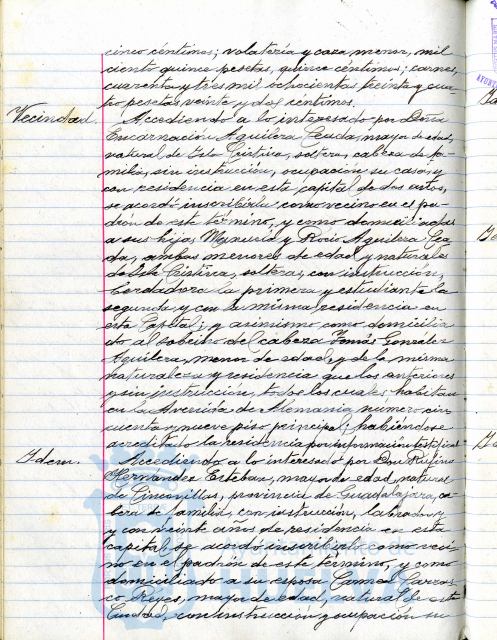 cinco céntimos; volatería y caza menor, mil
ciento quince pesetas, quince céntimos; carnes,
cuarenta y tres mil ochocientas treinta y cua-
tro pesetas veinte y dos céntimos.
Vecindad. Accediendo a lo interesado por Doña
Encarnación Aguilera mayor de edad,
natural de Isla Cristina, soltera, cabeza de fa-
milia, sin instrucción, ocupación su casa, y
con residencia en esta capital de dos años,
se acordó inscribirla como vecino en el pa-
drón de este término, y como domiciliadas
a sus hijas y Rocío Aguilera
ambas menores de edad y naturales
de Isla Cristina, solteras, con instrucción,
bordadora la primera y estudiante la
segunda y con la misma residencia en
esta Capital; y asimismo como domicilia-
do al sobrino del cabeza Tomás González
Aguilera, menor de edad, y de la misma
naturaleza y residencia que los anteriores
y sin instrucción, todos los cuales habitan
en la Avenida de Alemania, número cin-
cuenta y nueve piso principal; habiéndose
acreditado la residencia por información testifical
Idem. Accediendo a lo interesado por Don Rufino
Hernández Esteban, mayor de edad, natural
de Cincovillas, provincia de Guadalajara, ca-
beza de familia, con instrucción, labrador,
y con veinte años de residencia en esta
capital se acordó inscribirle como veci-
no en el padrón de este término, y como
domiciliado a su esposa Carmen Carras-
co Reyes, mayor de edad, natural de esta
Ciudad, con instrucción y ocupación su
Ayuntamiento de